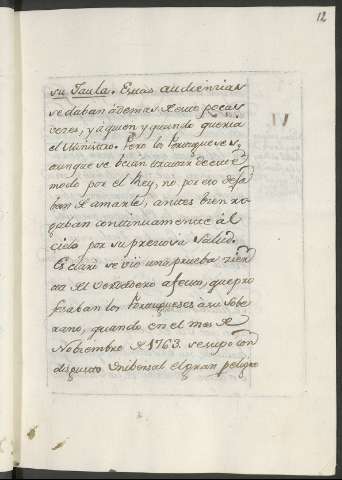 12
su Jaula. Estas audiencias
se daban àdemas de esto pocas
veces, y à quien y quando queria
el Ministro. Pero los Portugueses,
aunque se beian tratar de este
modo por el Rey, no por eso deja
ban de amarle, antes bien ro
gaban continuamente àl
cielo por su preciosa Salud.
Es claro se vio una prueba
del verdadero afecto, que pro
fesaban los Portugueses à su Sobe
rano, quando en el mes de
Nobiembre de 1763. se supo con
disgusto Unibersal el gran peligro